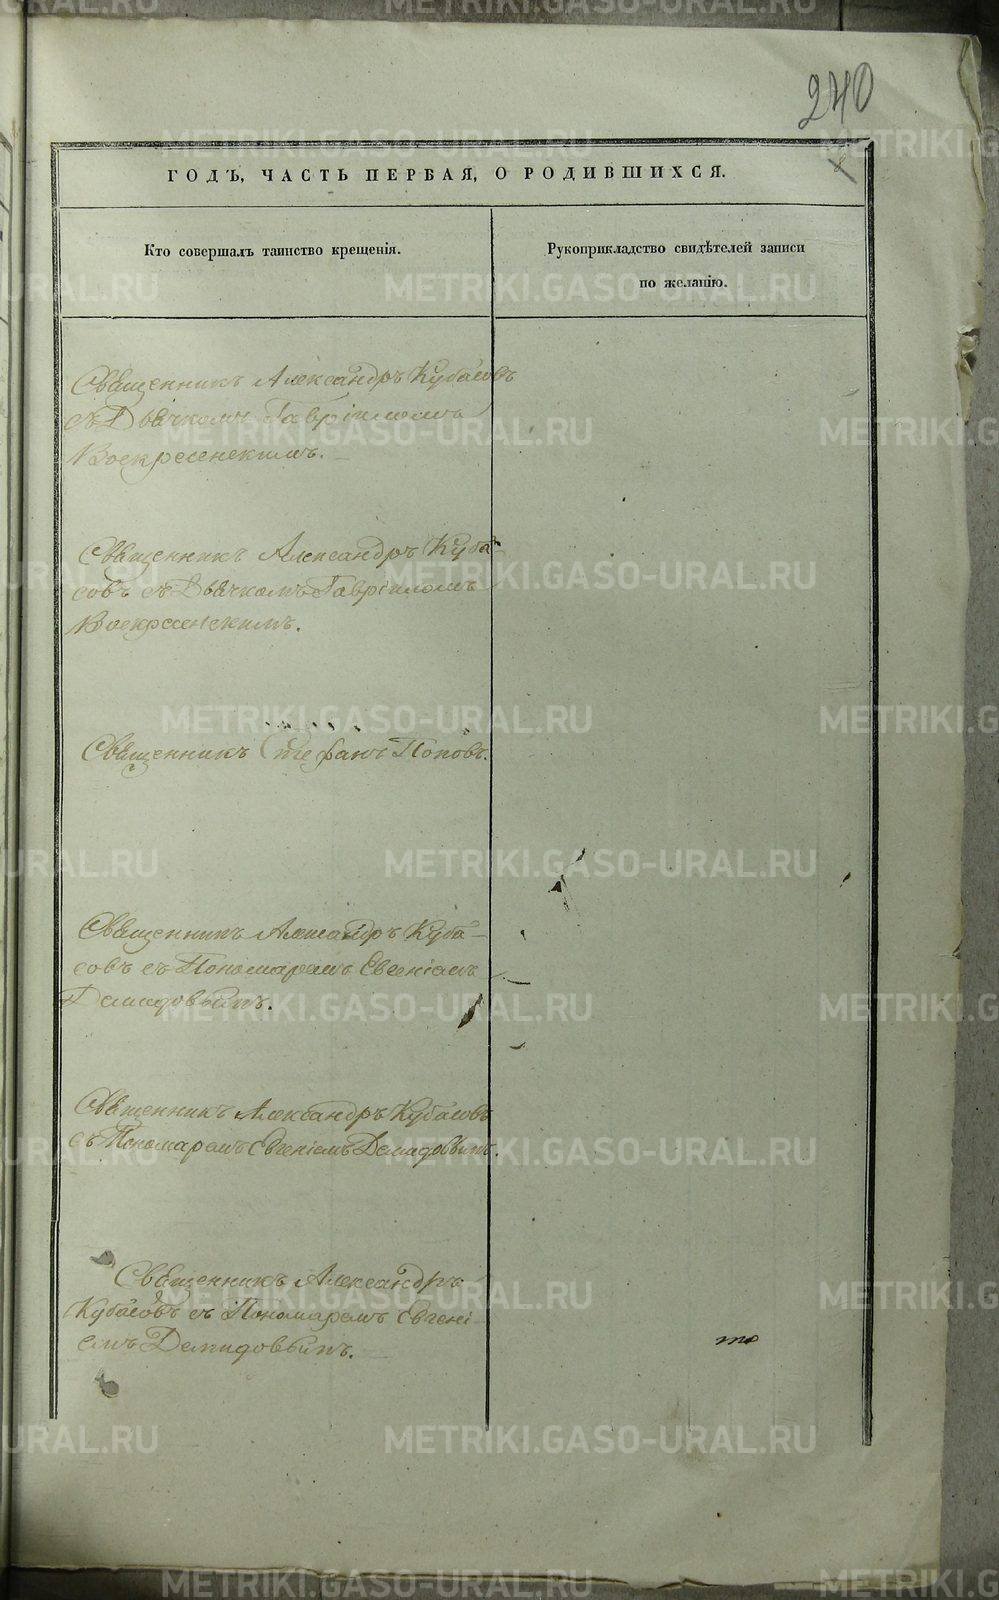 240
ГОДЪ, ЧАСТЬ ПЕРВАЯ, О РОДИВШИХСЯ.
Кто совершалъ таинство крещенія.
Рукоприкладство свидѣтелей записи
по желанію.
Священникъ Александръ Кубасовъ
съ Дьячкомъ Гавріиломъ
Воскресенскимъ.
Священникъ Александръ Куба-
совъ съ Дьячкомъ Гавріиломъ
Воскресенскимъ.
Священникъ Стефанъ Поповъ.
Священникъ Александръ Куба-
совъ съ Пономаремъ Евгеніемъ
Демидовымъ.
Священникъ Александръ Кубасовъ
съ Пономаремъ Евгеніемъ Демидовымъ.
Священникъ Александръ
Кубасовъ съ Пономаремъ Евгені-
емъ Демидовымъ.
то
METRIKI.GASO-URAL.RU